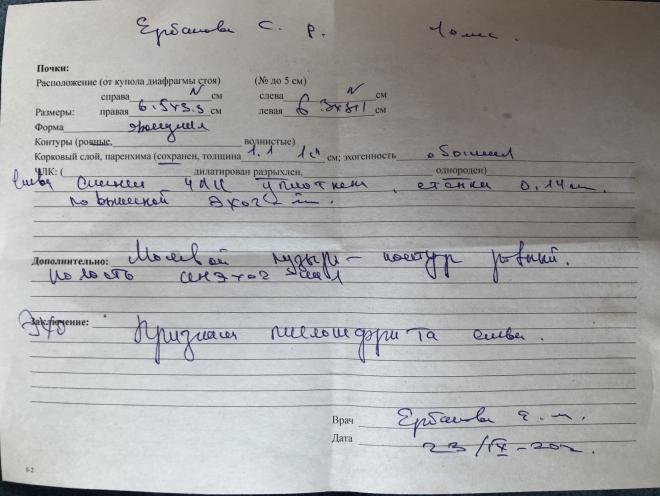 Ербанова С. р. 10 мес.
Почки:
Расположение (от купола диафрагмы стоя) (№ до 5 см)
справа N см слева N см
Размеры: правая 6.5х3.3 см левая 6.3х3.1 см
Форма
Контуры (ровные, волнистые)
Корковый слой, паренхима (сохранен, толщина 1.1 см; эхогенность обычная
ЧЛК: ( дилатирован разрыхлен, однороден)
слева стенки ЧЛК уплотнены, стенка 0.14 см.
повышенной
Дополнительно: Мочевой пузырь - контур ровный.
полость
Заключение: Признаки пиелонефрита слева.
Врач Ербанова
Дата 23/IX-202